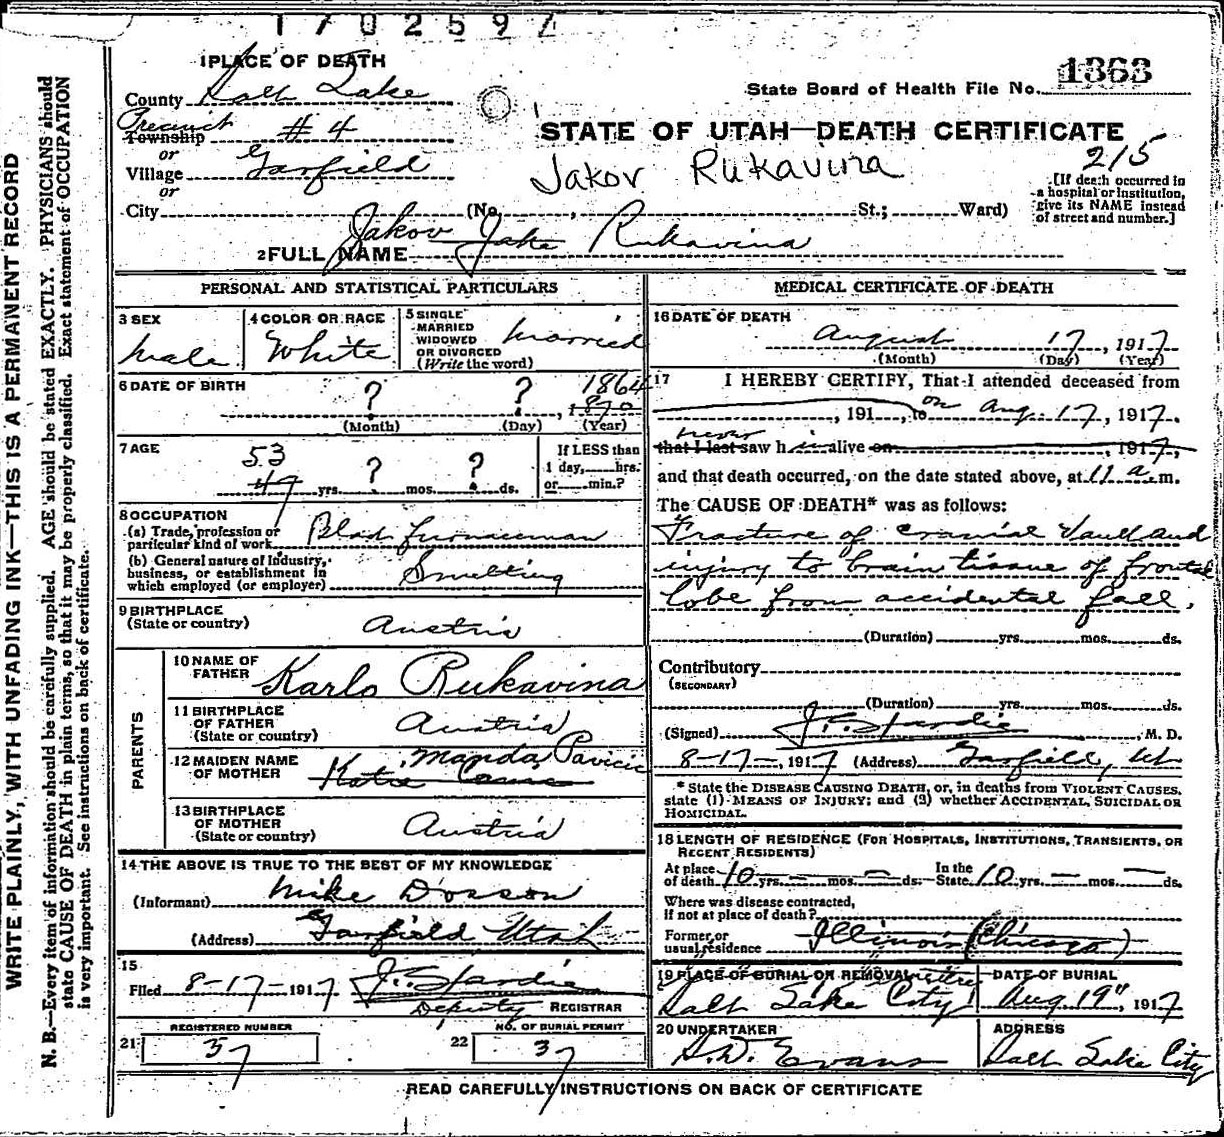 1702597
1 PLACE OF DEATH
State Board of Health File No. 1363
County Salt Lake
Precinct
Township # 4
or
Village Garfield
or
City (No. , St.; Ward)
STATE OF UTAH—DEATH CERTIFICATE
Jakov Rukavina
215
[If death occurred in
a hospital or institution,
give its NAME instead
of street and number.]
2 FULL NAME Jakov Jake Rukavina
PERSONAL AND STATISTICAL PARTICULARS
3 SEX
Male
4 COLOR OR RACE
White
5 SINGLE
MARRIED
WIDOWED
OR DIVORCED
(Write the word)
Married
6 DATE OF BIRTH
? ? 1864
, 1870
(Month) (Day) (Year)
7 AGE
53
47 yrs. ? mos. ? ds.
If LESS than
1 day, hrs.
or min.?
8 OCCUPATION
(a) Trade, profession or
particular kind of work Blast furnaceman
(b) General nature of industry,
business, or establishment in
which employed (or employer) Smelting
9 BIRTHPLACE
(State or country) Austria
PARENTS
10 NAME OF
FATHER Karlo Rukavina
11 BIRTHPLACE
OF FATHER
(State or country) Austria
12 MAIDEN NAME
OF MOTHER Manda Pavicic
Katie
13 BIRTHPLACE
OF MOTHER
(State or country) Austria
14 THE ABOVE IS TRUE TO THE BEST OF MY KNOWLEDGE
(Informant) Mike Dosson
(Address) Garfield Utah
15
Filed 8-17-1917 J. E. Hardie
Deputy REGISTRAR
REGISTERED NUMBER
21 37
NO. OF BURIAL PERMIT
22 37
MEDICAL CERTIFICATE OF DEATH
16 DATE OF DEATH
August 17, 1917
(Month) (Day) (Year)
17 I HEREBY CERTIFY, That I attended deceased from
, 191 , to on Aug. 17, 1917.
never
that I last saw h im alive on , 1917,
and that death occurred, on the date stated above, at 11 a.m.
The CAUSE OF DEATH* was as follows:
Fracture of cranial vault and
injury to brain tissue of frontal
lobe from accidental fall.
(Duration) yrs. mos. ds.
Contributory
(SECONDARY)
(Duration) yrs. mos. ds.
(Signed) J. E. Hardie, M. D.
8-17-, 1917 (Address) Garfield, Ut
* State the DISEASE CAUSING DEATH, or, in deaths from VIOLENT CAUSES,
state (1) MEANS OF INJURY; and (2) whether ACCIDENTAL, SUICIDAL OR
HOMICIDAL.
18 LENGTH OF RESIDENCE (FOR HOSPITALS, INSTITUTIONS, TRANSIENTS, OR
RECENT RESIDENTS)
At place
of death 10 yrs. — mos. — ds.
In the
State 10 yrs. — mos. — ds.
Where was disease contracted,
if not at place of death?
Former or
usual residence Illinois (Chicago)
19 PLACE OF BURIAL OR REMOVAL
Salt Lake City
DATE OF BURIAL
Aug. 19", 1917
20 UNDERTAKER
S. D. Evans
ADDRESS
Salt Lake City
READ CAREFULLY INSTRUCTIONS ON BACK OF CERTIFICATE
WRITE PLAINLY, WITH UNFADING INK—THIS IS A PERMANENT RECORD
N. B.—Every item of information should be carefully supplied. AGE should be stated EXACTLY. PHYSICIANS should
state CAUSE OF DEATH in plain terms, so that it may be properly classified. Exact statement of OCCUPATION
is very important. See instructions on back of certificate.